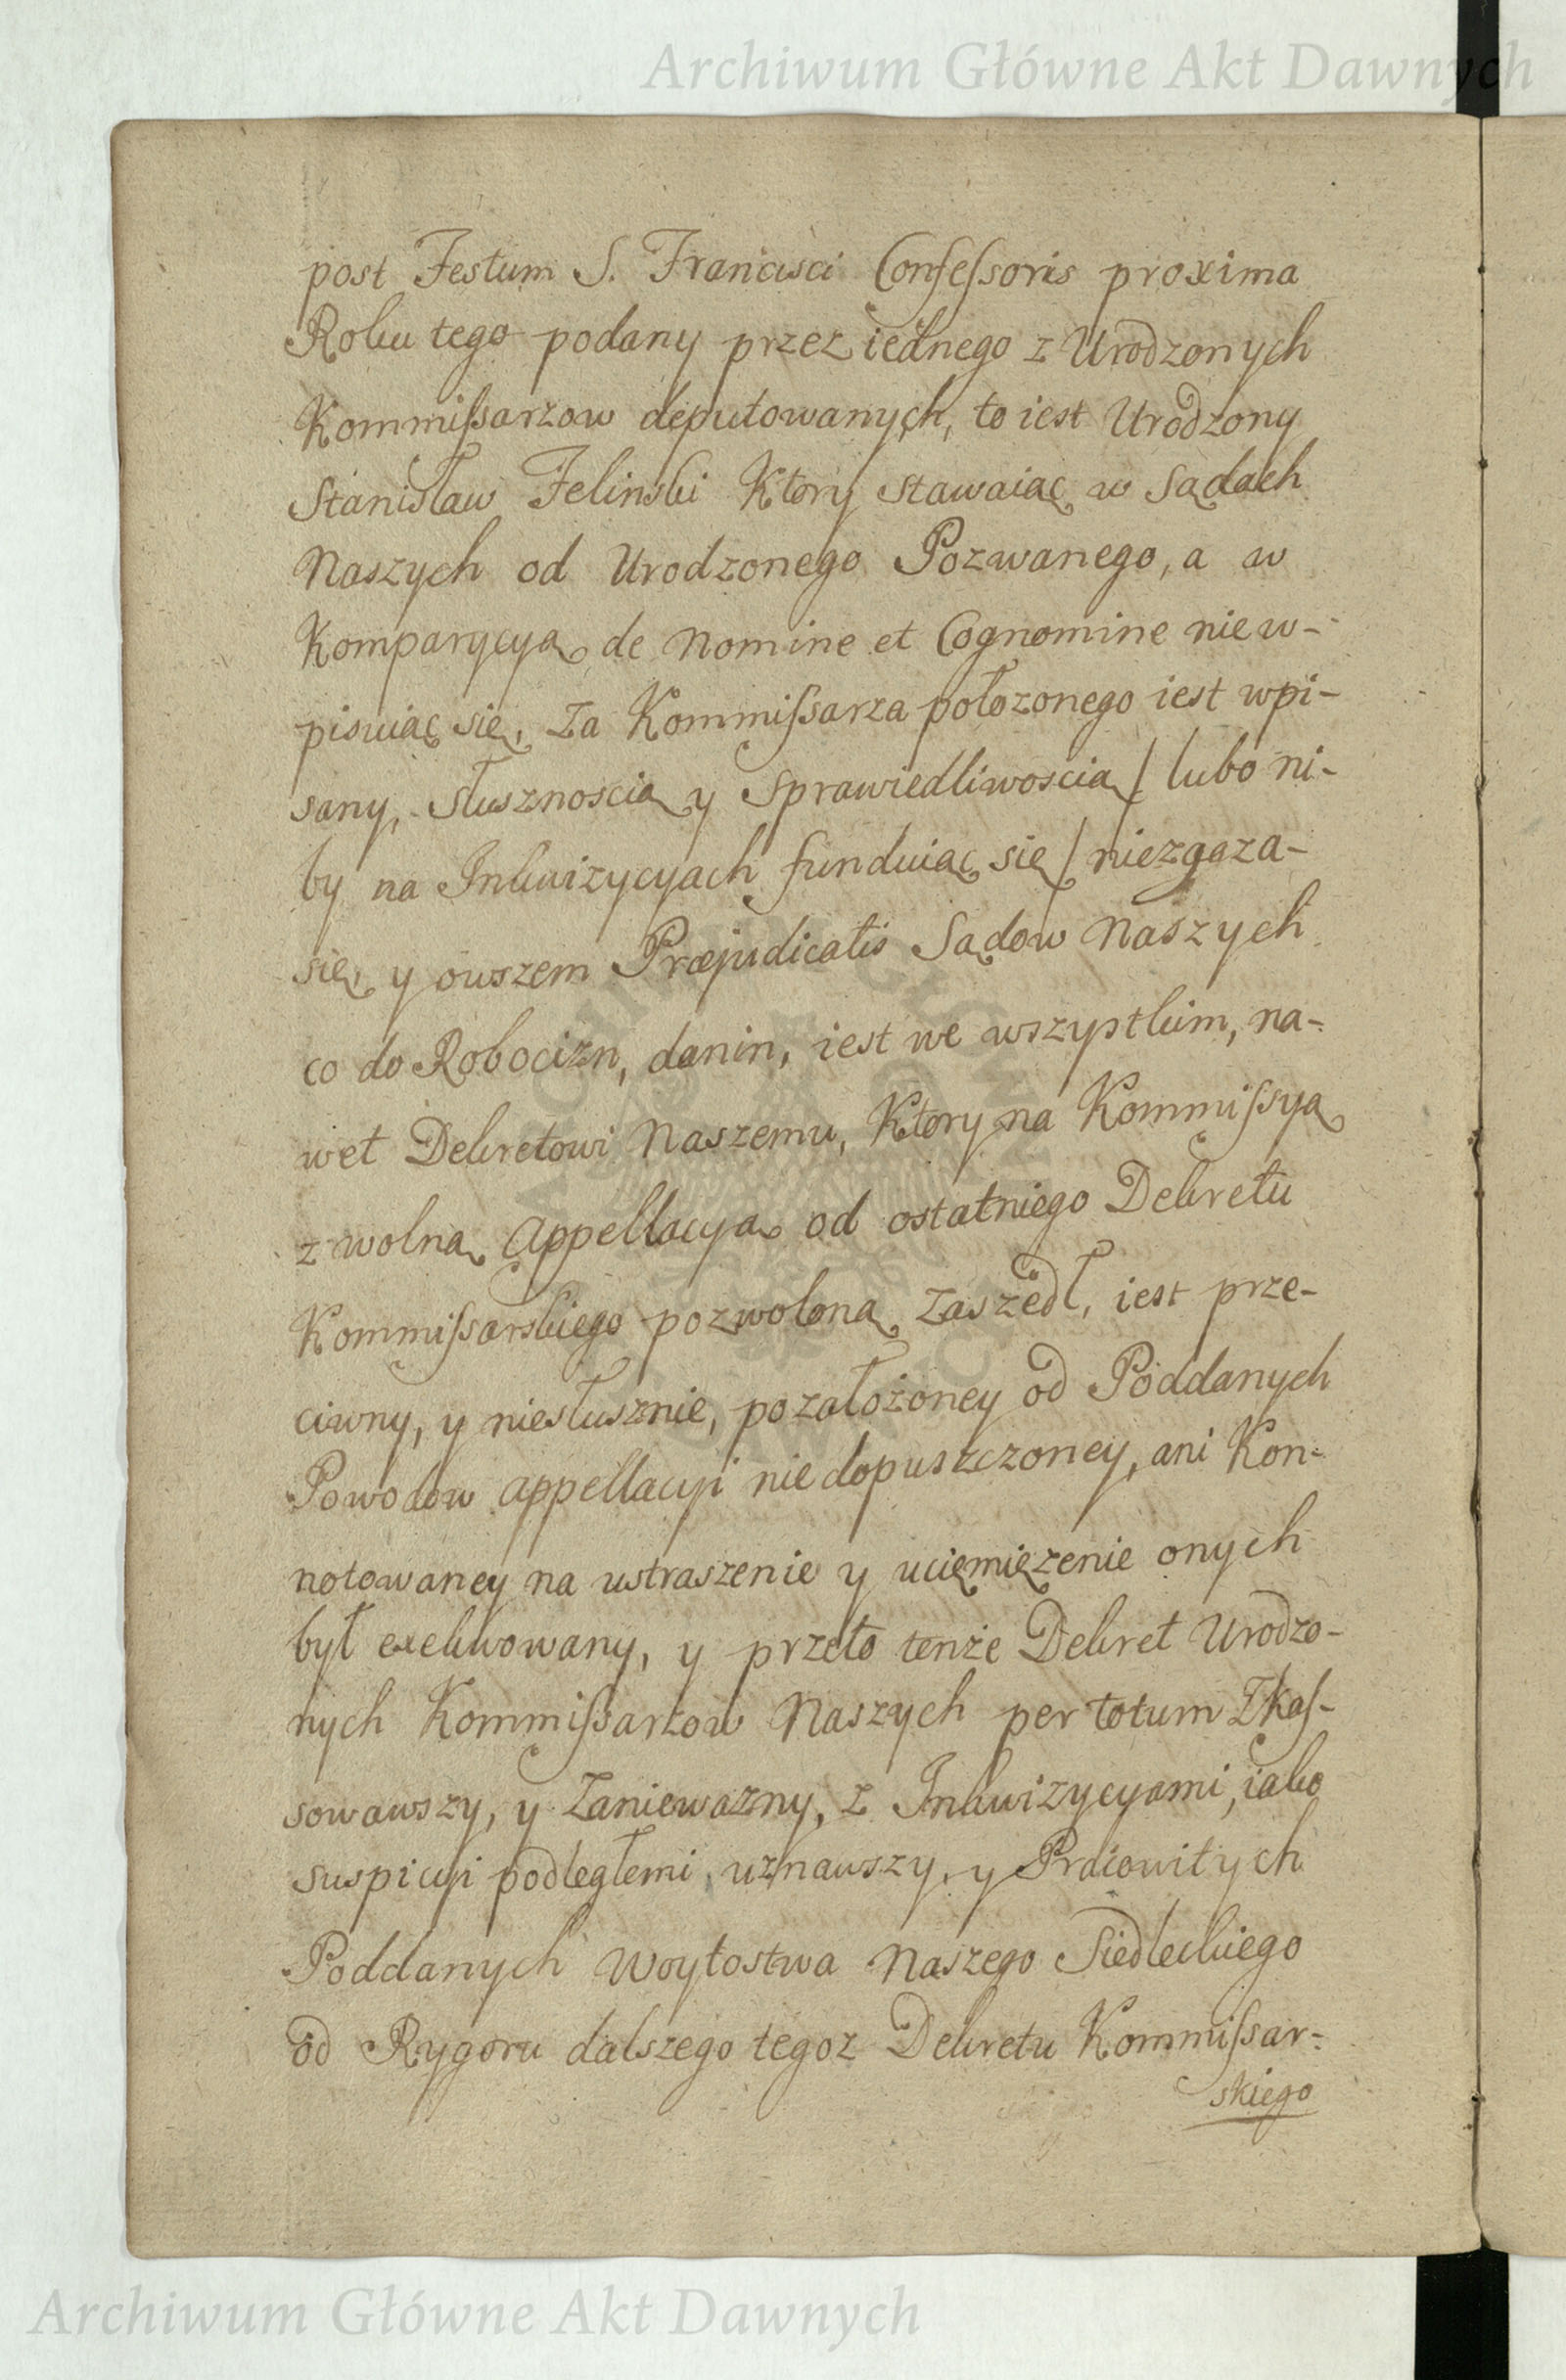 Archiwum Główne Akt Dawnych
post Festum S. Francisci Confeſsoris proxima
Roku tego podany przez iednego z Urodzonych
Kommiſsarzow deputowanych, to iest Urodzony
Stanisław Felinski Ktory stawaiąc w Sądach
Naszych od Urodzonego Pozwanego, a w
Komparycyą de Nomine et Cognomine niew-
pisuiąc się, za Kommiſsarza położonego iest wpi-
sany, słusznoscią y Sprawiedliwoscią / lubo ni-
by na Inkwizycyach funduiąc się / niezgaza-
się, y owszem Præjudicatis Sądow Naszych
co do Robocizn, danin, iest we wszystkim, na-
wet Dekretowi Naszemu, Ktory na Kommiſsyą
z wolną Appellacyą od ostatniego Dekretu
Kommiſsarskiego pozwoloną zaszedł, iest prze-
ciwny, y niesłusznie, pozałożoney od Poddanych
Powodow appellacyi niedopuszczoney, ani Kon-
notowaney na ustraszenie y ucięmięzenie onych
był exekwowany, y przeto tenże Dekret Urodzo-
nych Kommiſsarzow Naszych per totum Zkaſ-
sowawszy, y Zaniewazny, z Inkwizycyami, iako
suspicyi podległemi, uznawszy, y Pracowitych
Poddanych Woytostwa Naszego Siedleckiego
od Rygoru dalszego tegoz Dekretu Kommiſsar-
skiego
Archiwum Główne Akt Dawnych